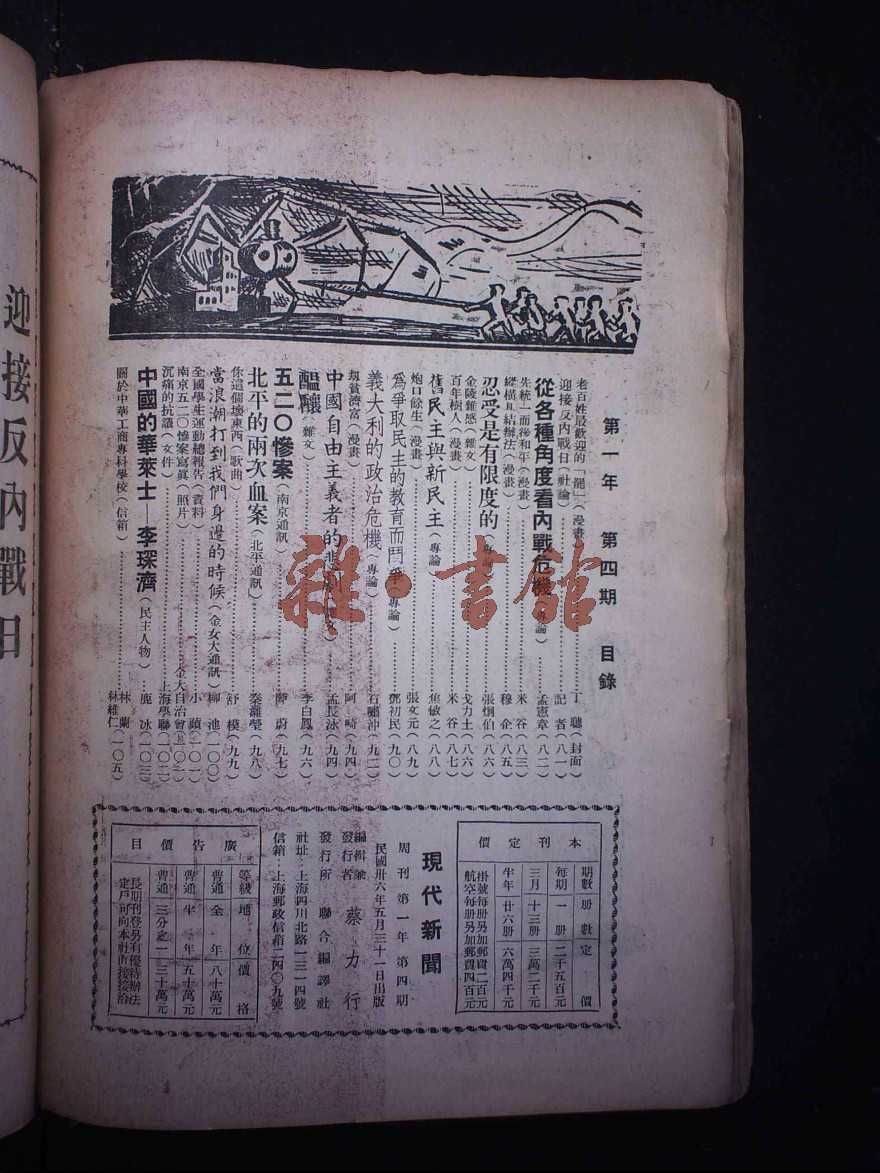 迎接反內戰日
第一年 第四期 目錄
老百姓最歡迎的「罷」(漫畫)……丁聰(封面)
迎接反內戰日(社論)……記者(八一)
從各種角度看內戰危機(專論)……孟憲章(八二)
先統一而後和平(漫畫)……米谷(八三)
縱橫互結辦法(漫畫)……穆企(八五)
忍受是有限度的(專論)……張炯伯(八六)
金陵雜感(雜文)……戈力士(八六)
百年樹人(漫畫)……米谷(八七)
舊民主與新民主(專論)……焦敏之(八八)
炮口餘生(漫畫)……張文元(八九)
爲爭取民主的教育而鬥爭(專論)……鄧初民(九〇)
義大利的政治危機(專論)……石嘯沖(九二)
劫貧濟富(漫畫)……阿崎(九四)
中國自由主義者的悲……孟長泳(九四)
醞釀(雜文)……李白鳳(九六)
五二〇慘案(南京通訊)……蔚(九七)
北平的兩次血案(北平通訊)……秦灕瑩(九八)
你這個壞東西(歌曲)……舒模(九九)
當浪潮打到我們身邊的時候(金女大通訊)……柳池(一〇〇)
全國學生運動總報告(資料)……小蘋(一〇一)
南京五二〇慘案寫眞(照片)……金大自治會(一〇二)
沉痛的抗議(文件)……上海學聯(一〇二)
中國的華萊士—李琛濟(民主人物)……鹿冰(一〇三)
關於中華工商專科學校(信箱)……林蘭 林維仁(一〇五)
本刊定價
期數 册數 定價
每期 一册 二千五百元
三月 十三册 三萬二千元
半年 廿六册 六萬四千元
掛號每册另加郵費二百元
航空每册另加郵費四百元
現代新聞
周刊 第一年 第四期
民國卅六年五月三十一日出版
編輯兼發行者 蔡力行
發行所 聯合編譯社
社址：上海四川北路一三一四號
信箱：上海郵政信箱二四〇九號
廣告價目
等級 地位 價格
普通 全年 八十萬元
普通 半年 五十萬元
普通 三分之一 三十萬元
長期刊登另有優待辦法
定戶可向本社直接接洽
雜·書館